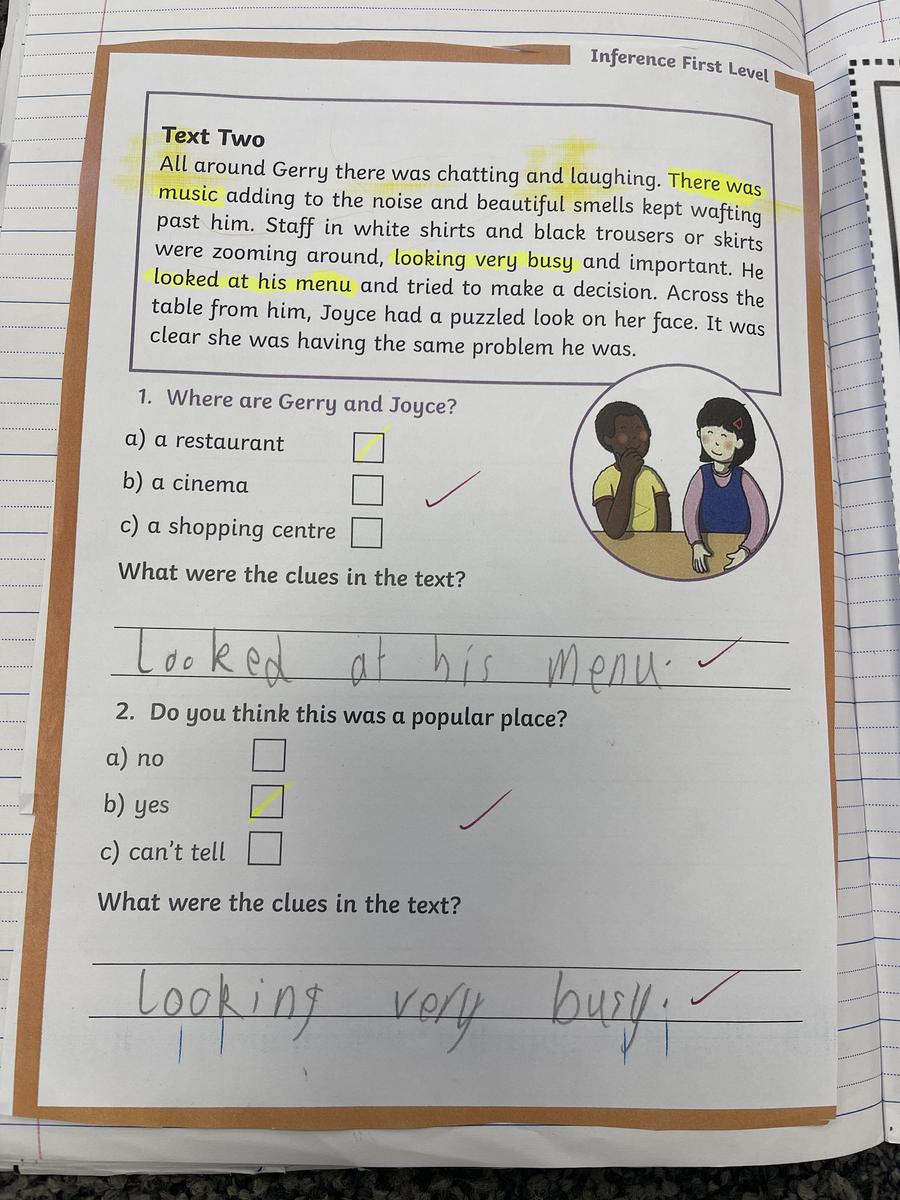 Inference First Level
Text Two
All around Gerry there was chatting and laughing. There was
music adding to the noise and beautiful smells kept wafting
past him. Staff in white shirts and black trousers or skirts
were zooming around, looking very busy and important. He
looked at his menu and tried to make a decision. Across the
table from him, Joyce had a puzzled look on her face. It was
clear she was having the same problem he was.
1. Where are Gerry and Joyce?
a) a restaurant
b) a cinema
c) a shopping centre
What were the clues in the text?
Looked at his menu.
2. Do you think this was a popular place?
a) no
b) yes
c) can't tell
What were the clues in the text?
Looking very busy.